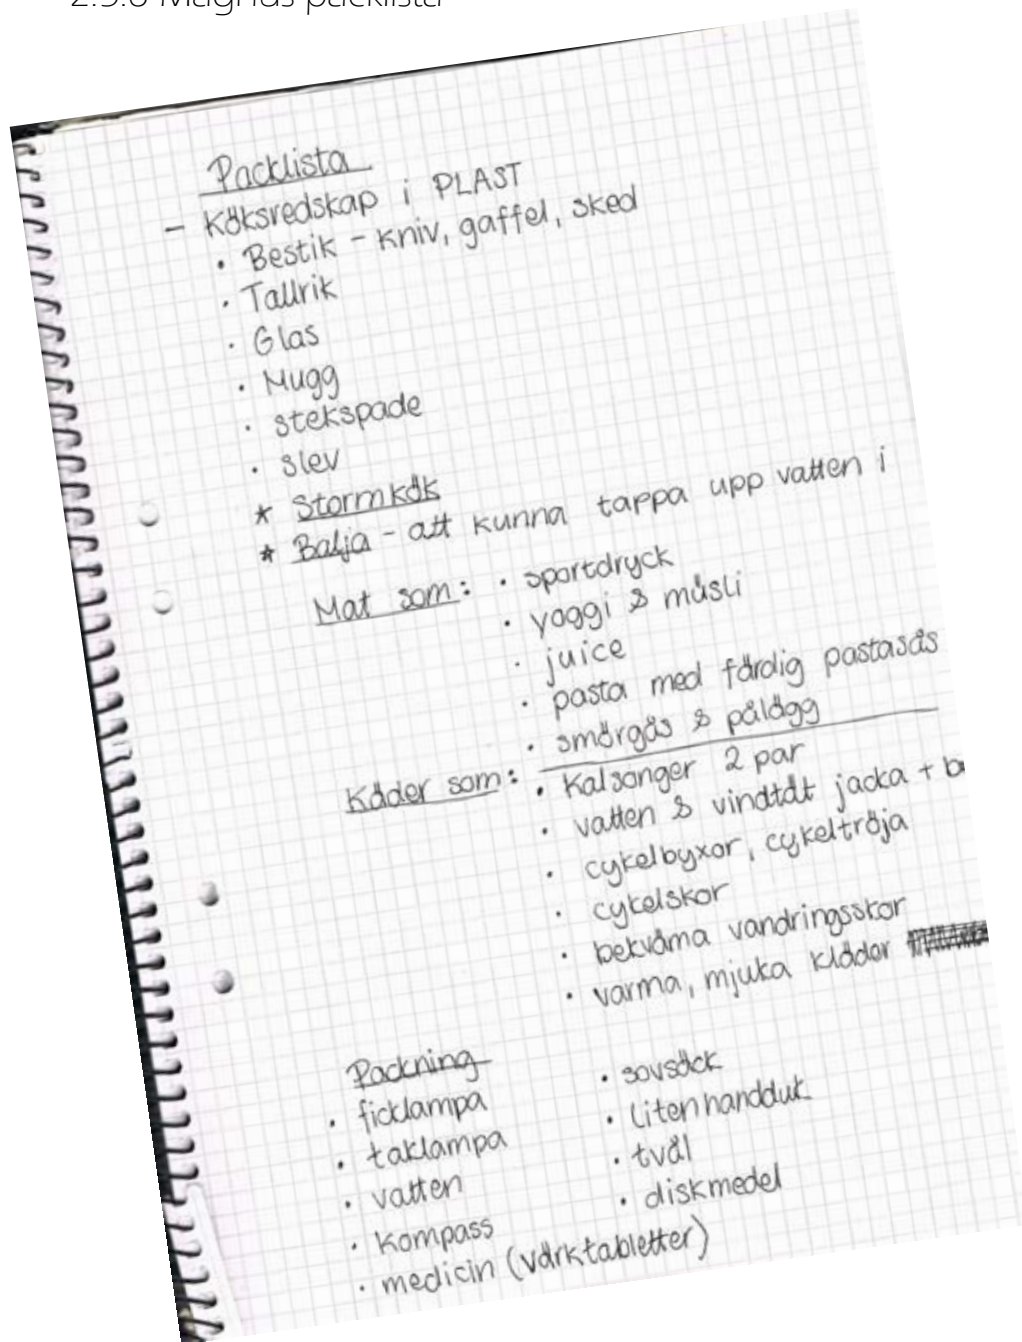 2.3.6 Magnus packlista
Packlista
- Köksredskap i PLAST
• Bestik - kniv, gaffel, sked
• Tallrik
• Glas
• Mugg
• stekspade
• slev
* Stormkök
* Balja - att kunna tappa upp vatten i
Mat som: • sportdryck
• yoggi & müsli
• juice
• pasta med färdig pastasås
• smörgås & pålägg
Käder som: • Kalsonger 2 par
• vatten & vindtät jacka +
• cykelbyxor, cykeltröja
• cykelskor
• bekväma vandringsskor
• varma, mjuka kläder
Packning
• ficklampa
• taklampa
• vatten
• kompass
• medicin (värktabletter)
• sovsäck
• liten handduk
• tvål
• diskmedel